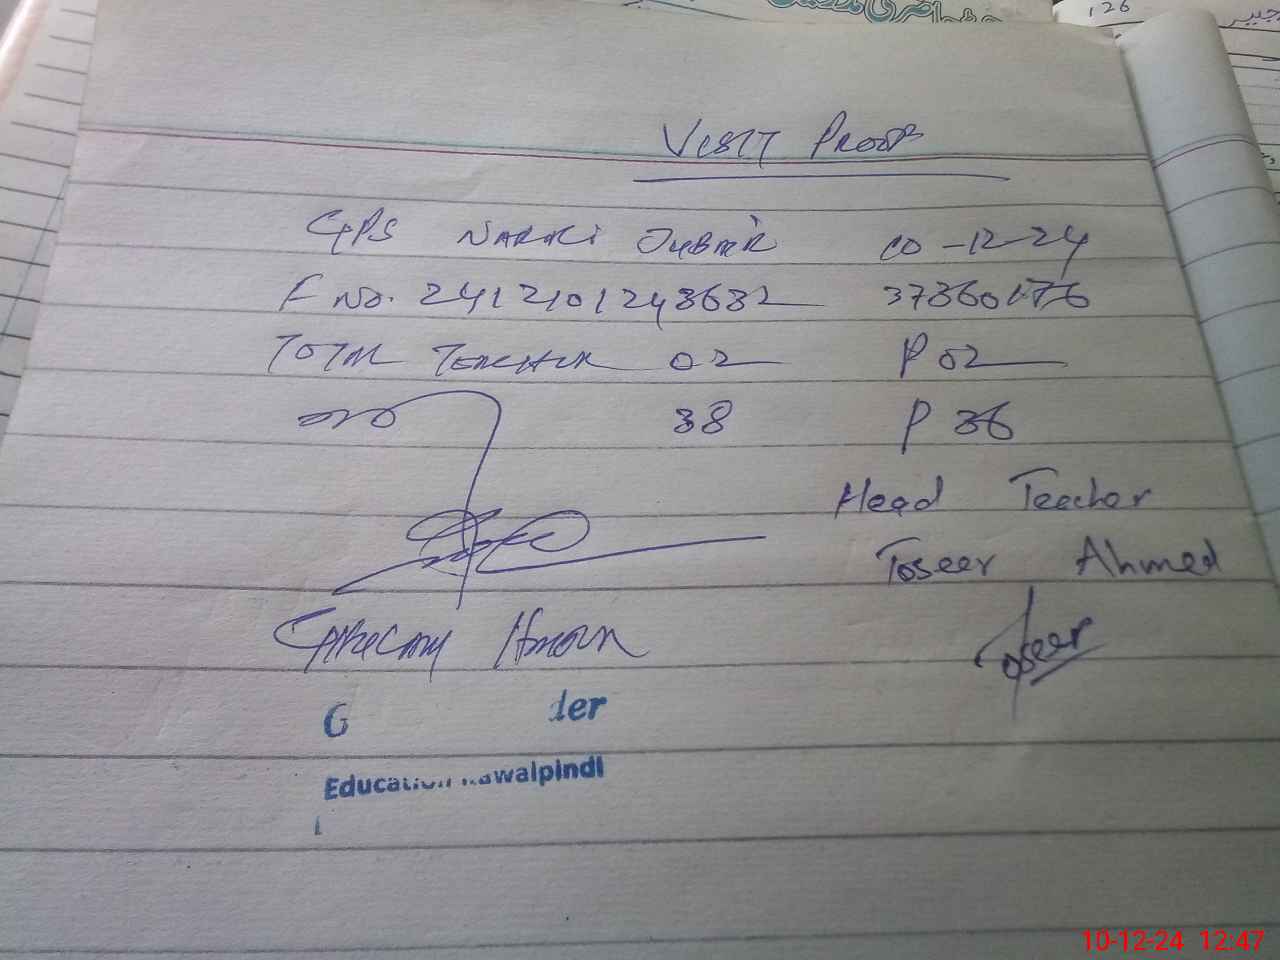 126
VISIT PROOF
GPS NARALI JUBAIR 10-12-24
F No. 2412101243632 37360176
TOTAL TEACHER 02 P 02
38 P 36
Head Teacher
Toseer Ahmed
Toseer
Education Rawalpindi
10-12-24 12:47